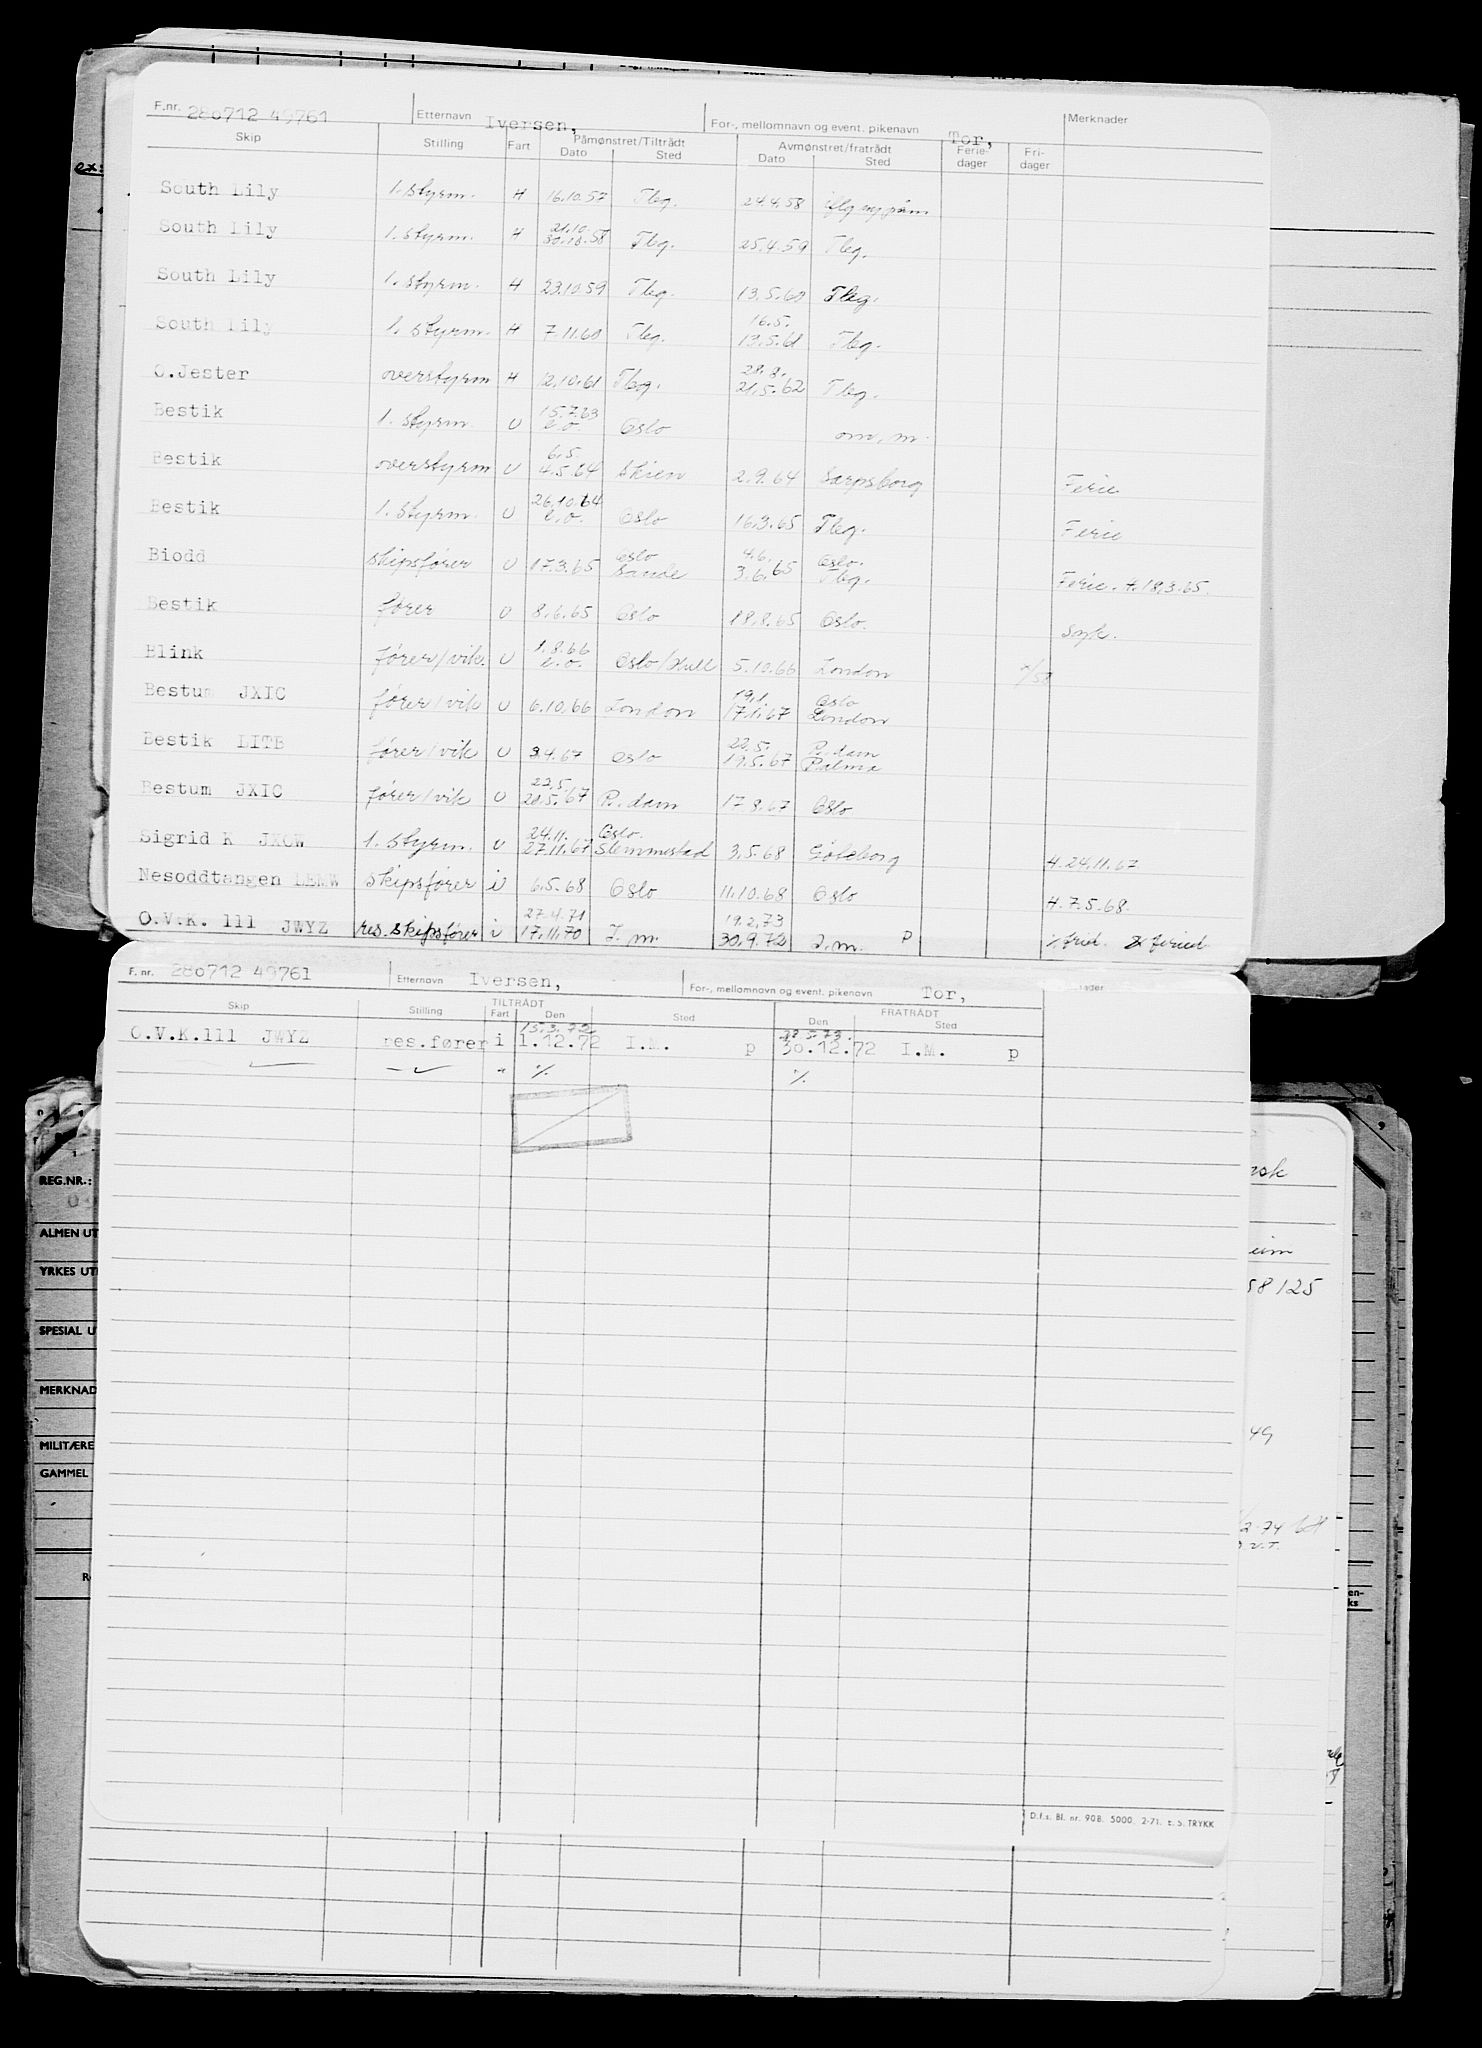 F.nr. 280712 49761 Etternavn Iversen, For-, mellomnavn og event. pikenavn Tor, Merknader
Skip Stilling Fart Påmønstret/Tiltrådt Dato Sted Avmønstret/fratrådt Dato Sted Ferie-dager Fri-dager
South Lily 1. styrm. H 16.10.57 Tbg. 24.4.58 iflg ny påm
21.10.
South Lily 1. styrm. H 30.10.58 Tbg. 25.4.59 Tbg.
South Lily 1. styrm. H 23.10.59 Tbg. 13.5.60 Tbg.
16.5.
South Lily 1. styrm. H 7.11.60 Tbg. 13.5.61 Tbg.
28.8.
O.Jester overstyrm H 12.10.61 Tbg. 21.5.62 Tbg.
15.7.63
Bestik 1. styrm. U e.o. Oslo om. m.
6.5.
Bestik overstyrm U 4.5.64 Skien 2.9.64 Sarpsborg Ferie
26.10.64
Bestik 1. styrm. U e.o. Oslo 16.3.65 Tbg. Ferie
Oslo 4.6. Oslo.
Biodd skipsfører U 17.3.65 Sande 3.6.65 Tbg. Ferie. t. 18.3.65.
Bestik fører U 8.6.65 Oslo 18.8.65 Oslo. Syk.
1.8.66
Blink fører/vik. U e.o. Oslo/Hull 5.10.66 London
19.1. Oslo
Bestum JXIC fører/vik U 6.10.66 London 17.1.67 London
22.5. R.dam
Bestik LITB fører/vik U 3.4.67 Oslo 19.5.67 Palma
23.5.
Bestum JXIC fører/vik U 20.5.67 R.dam 17.8.67 Oslo
24.11. Oslo.
Sigrid K JXOW 1. styrm. U 27.11.67 Slemmestad 3.5.68 Göteborg t. 24.11.67
Nesoddtangen LEMW skipsfører i 6.5.68 Oslo 11.10.68 Oslo t. 7.5.68.
27.4.71 19.2.73
O.V.K. 111 JWYZ res. skipsfører i 17.11.70 I.m. 30.9.72 I.m. P
F. nr. 280712 49761 Etternavn Iversen, For-, mellomnavn og event. pikenavn Tor,
Skip Stilling TILTRÅDT Fart Den Sted FRATRÅDT Den Sted
13.3.72 28.2.73.
O.V.K.111 JWYZ res.fører i 1.12.72 I.M. p 30.12.72 I.M. p
D.f.s. Bl. nr. 908. 5000. 2-71. E. S. TRYKK
REG.NR.:
ALMEN UT
YRKES UT
SPESIAL U
MERKNAD
MILITÆRE
GAMMEL
58125
49